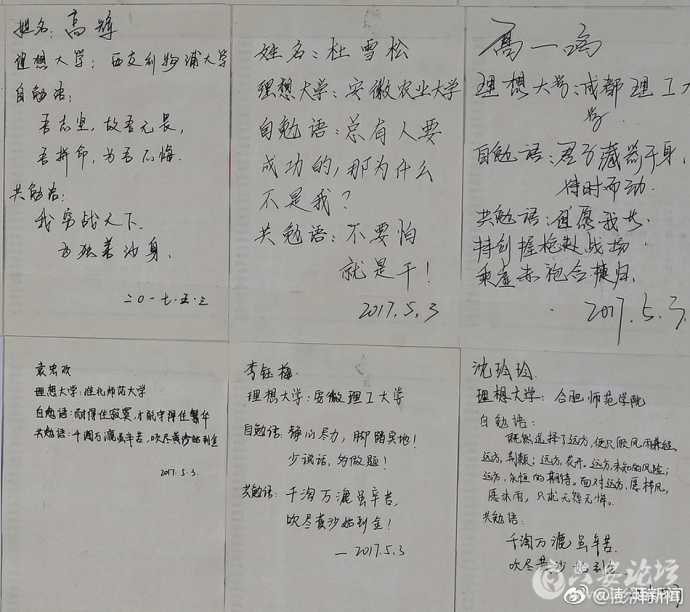 姓名：高
理想大学：西交利物浦大学
自勉语：
吾志坚，故吾无畏，
吾拼命，为吾不悔．
共勉语：
我劳战天下．
二〇一七．五．三
姓名：杜雪松
理想大学：安徽农业大学
自勉语：总有人要
成功的，那为什么
不是我？
共勉语：不要怕
就是干！
2017．5．3
高一
理想大学：成都理工大
学
自勉语：君子藏器于身，
待时而动．
共勉语：但愿我
特创握枪赴战场．
2017．5．3
袁忠政
理想大学：淮北师范大学
自勉语：耐得住寂寞，才能守得住繁华
共勉语：千淘万漉虽辛苦，吹尽黄沙始到金
2017．5．3
李钰梅
理想大学：安徽理工大学
自勉语：静心尽力，脚踏实地！
少说话，多做题！
共勉语：千淘万漉虽辛苦，
吹尽黄沙始到金！
—2017．5．3
沈玲玲
理想大学：合肥师范学院
自勉语：
既然选择了远方，便只顾风雨兼程．
远方，荆棘；远方，花开．远方，未知的风险；
远方，永恒的期待．面对远方，愿
只求无怨无悔．
共勉语：
千淘万漉虽辛苦．
吹尽黄沙始到金
六安论坛
@澎湃新闻